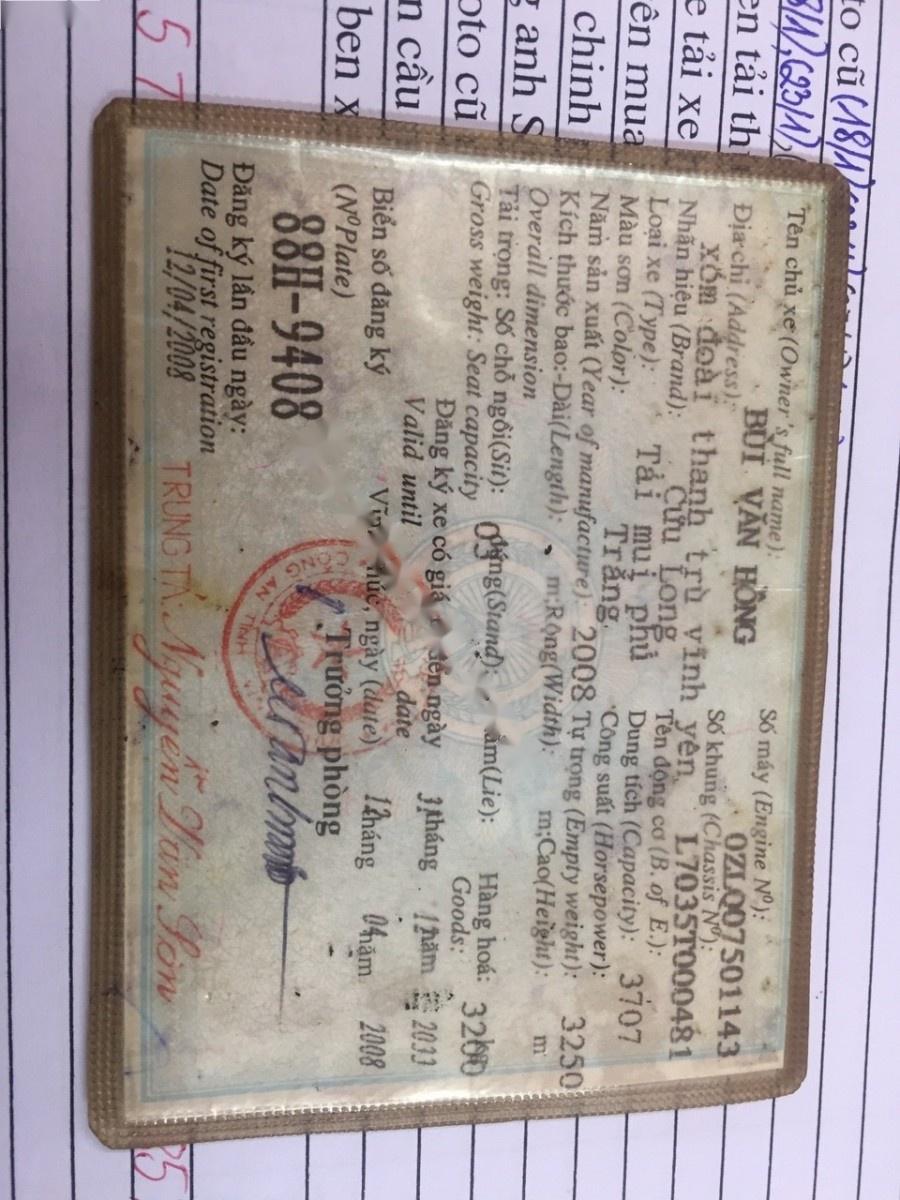 Tên chủ xe (Owner's full name):
BÙI VĂN HỒNG
Số máy (Engine Nº):
0ZLQ07501143
Địa chỉ (Address):
xóm đoài thanh trù vĩnh yên
Số khung (Chassis Nº):
L7035T000481
Nhãn hiệu (Brand): Cửu Long
Tên động cơ (B. of E.):
Loại xe (Type): Tải mui phủ
Dung tích (Capacity): 3707
Màu sơn (Color): Trắng
Công suất (Horsepower):
Năm sản xuất (Year of manufacture): 2008 Tự trọng (Empty weight): 3250
Kích thước bao:-Dài(Length): m;Rộng(Width): m;Cao(Height): m
Overall dimension
Tải trọng: Số chỗ ngồi(Sit): 03 (Stand): (Lie): Hàng hoá:
Gross weight: Seat capacity Goods:
Đăng ký xe có giá đến ngày 31 tháng 12 năm 2033
Valid until date
Biển số đăng ký
(NºPlate)
88H-9408
ngày (date) 12 tháng 04 năm 2008
Trưởng phòng
CÔNG AN TỈNH
Đăng ký lần đầu ngày:
Date of first registration
12/04/2008
TRUNG TÁ: Nguyễn Văn Sơn
to cũ (18/1)
8/1), (23/1),
ên tải th
e tải xe
ên mua
chinh
g anh S
oto cũ
n cầu
ben x
5 7